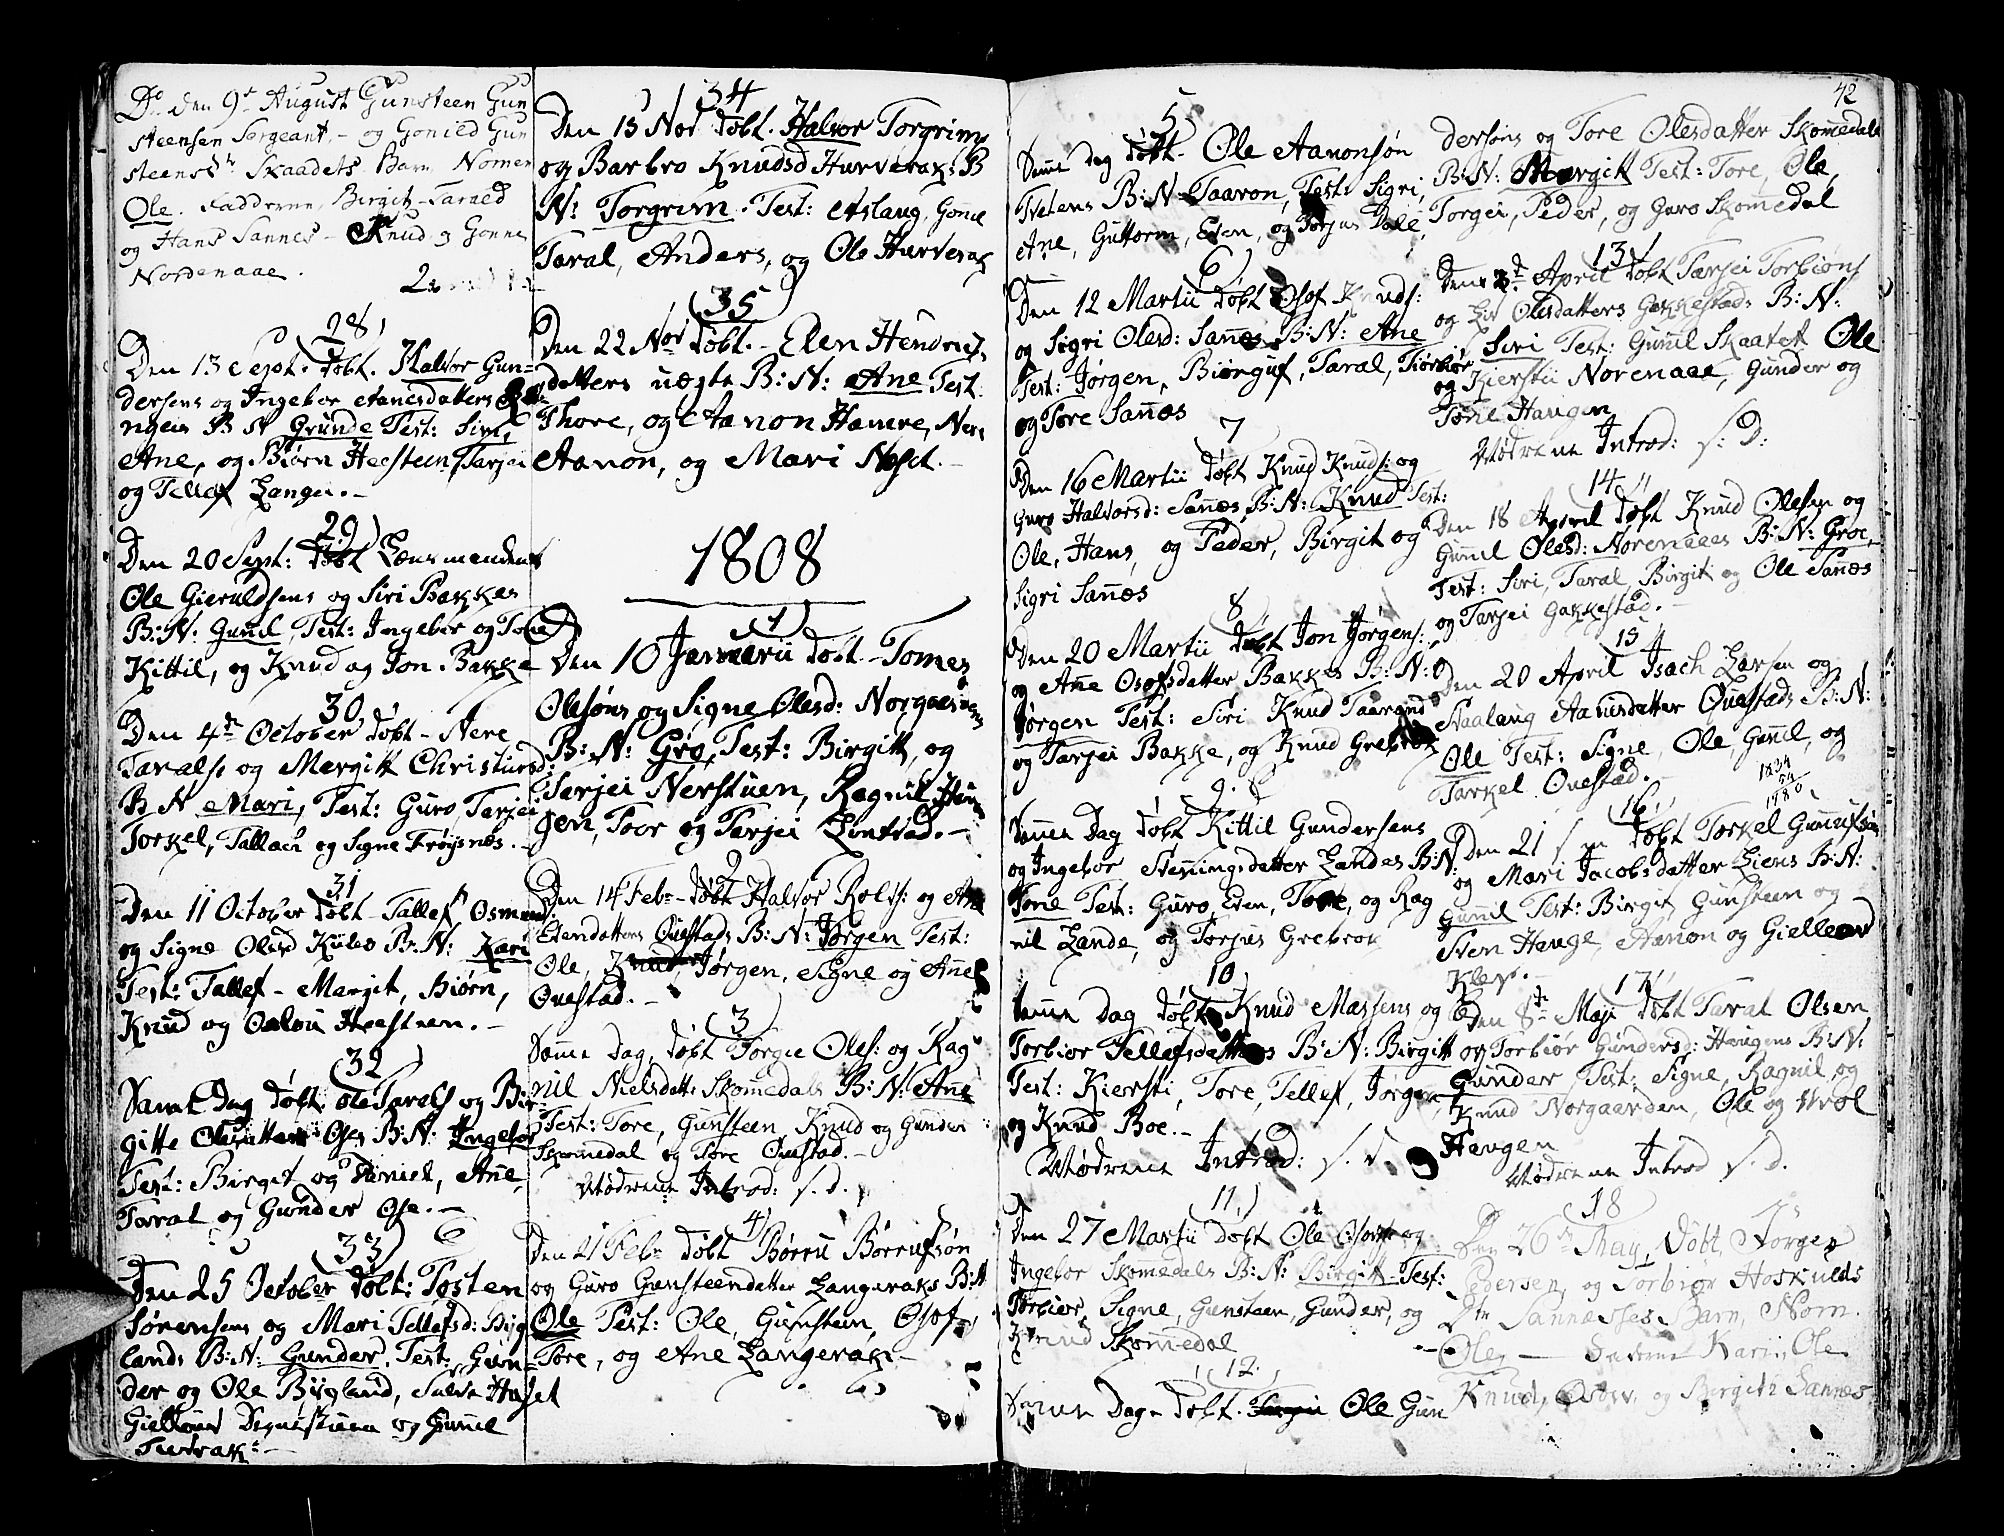 Do den 9de August Gunsteen Gun
steensen Sergeant - og Gonild Gun
steensdr Skaadets Barn Nomen
Ole. Fadderne, Birgit - Tarald
og Hans Sannes - Knud og Gonne
Nordenaae.
28
Den 13 Sept. døbt. Halvor Gun-
dersens og Ingebor Aanesdatters
ngen B: N Grunde Test: Siri,
Ane, og Biørn Heesteen, Tarjei
og Tellef Langei.-
29
Den 20 Sept: døbt Lænsmandens
Ole Gieruldsens og Siri Bakkes
B: N: Guñil, Test: Ingebor og Tone
Kittil, og Knud og Jon Bakke
30
Den 4de October døbt - Nere
Taralss og Margitt Christiansd:
B: N Mari, Test: Guro, Tarjei
Torkel, Tallach og Signe Frøysnæs.-
31
Den 11 October døbt - Tallef Osmund:
og Signe Olesd Kiiles B: N: Kari
Test: Tallef - Margit, Biørn,
Knud og Heesteen.-
32
Samt Dag døbt Ole Taralss og Bir-
gitte Olsdatters Øses B: N: Ingebor
Test: Birget og Daniel, Ane,
Taral og Gunder Øse.-
33
Den 25 October døbt: Tosten
Sørensens og Mari Tellefsd: Byg
lands B: N: Gunder, Test: Gun-
der og Ole Bygland, Salve Haset
og Guñil

34
Den 15 Nov døbt. Halvor Torgrims
og Barbro Knudsd Hurveraks B
N: Torgrim. Test: Aslaug, Goñil
Taral, Anders, og Ole Hurverak
35
Den 22 Nov døbt.- Elen Hendrics
datters uægte B: N: Ane Test:
Thore, og Aanon Hamre,
Aanon, og Mari Neset.-
1808
1
Den 10 Januarii døbt - Tomes
Olesøns og Signe Olesd: Norgaardens
B: N: Gro, Test: Birgitt, og
Tarjei Nerstuen, Ragnil Hau
gen, Toor og Tarjei Lintrad.-
2
Den 14 Febr døbt Halvor Rolvs: og Ane
Etendatters Ouestads B: N: Jørgen Test:
Ole, Knud, Jørgen, Signe og Añe
Ouestad.-
3
Samme Dag, døbt Torgie Oles: og Rag
nil Nielsdatt: Skomedals B: N: Añe
Test: Tore, Gunsteen, Knud og Gunder
Skomedal og Tore Ouestad.-
Mødrene Introd: s. d.
4
Den 21 Febr døbt Børru Børrufsøn
og Guro Gunsteendatter Langeraks B: N
Ole Test: Ole, Gunsteen, Osof,
Tore, og Ane Langerak.-

42
5
Samme Dag døbt. Ole Aanonsøn
Tvetens B: N Taaron, Test: Sigri,
Ane, Guttorm, Even, og Torjus Dale,
6
Den 12 Martii døbt Osof Knuds:
og Sigri Olesd: Sañæs B: N: Ane
Test: Jørgen, Biørguf, Taral, Torbiør
og Tore Sañæs
7
Den 16 Martii døbt Knud Knuds: og
Guro Halvorsd: Sañæs B: N: Knud Test:
Ole, Hans, og Peder, Birgit og
Sigri Sañæs
8
Den 20 Martii døbt Jon Jørgens:
og Añe Osofsdatter Bakkes B: N:
Jørgen Test: Siri Knud Taarand
og Tarjei Bakke, og Knud Grebrok
9
Samme Dag døbt Kittil Gundersens
og Ingebor Steningsdatter Landes B: N
Tone Test: Guro, Even, Tore, og Rag
nil Lande, og Torjus Grebrok
10
Samme Dag døbt Knud Massens og
Torbior Tellefsdatters B: N: Birgitt
Test: Kiersti, Tore, Tellef, Jørgen
og Knud Boe.-
Mødrene Introd: s. d.
11
Den 27 Martii døbt Ole Osofs og
Ingebor Skomedals B: N: Birgitt Test:
Torbior, Signe, Gunsteen, Gunder, og
Knud Skomedal
12
Samme Dag døbt. Ole Gun

dersøns og Tore Olesdatter Skomedals
B: N: Margitt Test: Tore, Ole,
Torgei, Peder, og Guro Skomedal
13
Den 3d April døbt Tarjei Torbiøns
og Liv Olesdatters Gakkestads B: N:
Siri Test: Guñil Skaatet Ole
og Kierstii Norenaae, Gunder og
Tone Haugen
Mødrene Introd: s: D:
14
Den 18 April døbt Knud Olesen og
Guñil Olesd: Norenaaes B: N: Groe,
Test: Siri, Taral, Birgit og Ole Sañæs
og Tarjei Gakkestad.-
15
Den 20 April Isach Larsen og
Aslaug Aanusdatter Ouestads B: N:
Ole Test: Signe, Ole, Guñil, og
Tarkel Ouestad.
1834
54
1780
16
Den 21 døbt Torkel
og Mari Jacobsdatter Liens B: N:
Guñil Test: Birgit, Gunsteen og
Sten Hauge, Aanon og
Klev.-
17
Den 8de Maji døbt Taral Olsen
og Torbiør Gundersd: Haugens B: N:
Gunder, Test: Signe, Ragnil, og
Knud Norgaarden, Ole og
Haugen
Mødrene Introd s. d.
18
Den 26de May, Døbt, Jørgen
Pedersen, og Torbiør Hoskulds
Dtr Sannesses Barn, Nom.
Ole, - Fadderne Kari, Ole
Knud, Osov, og Birgith Sannes